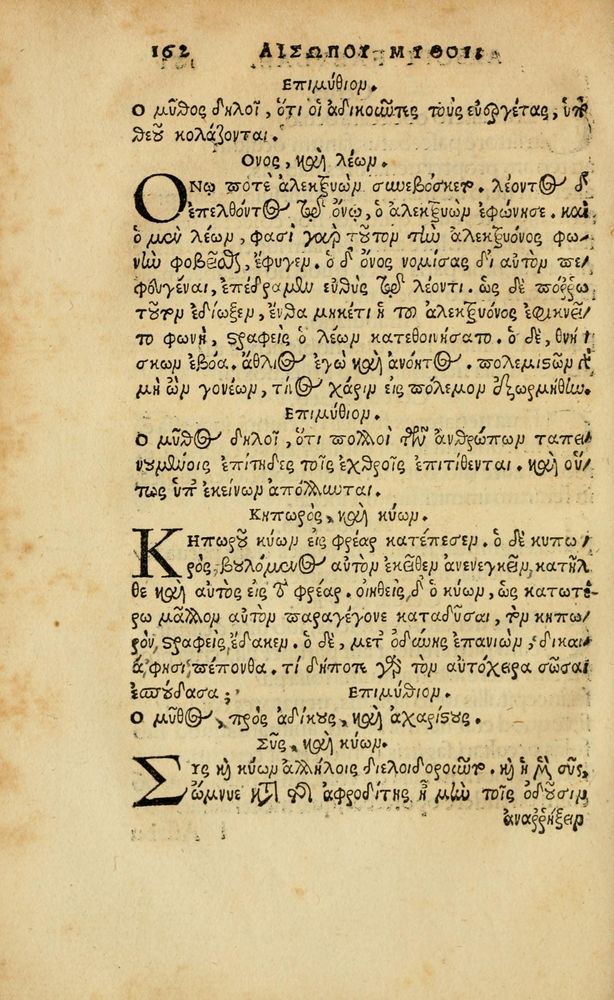 162 ΑΙΣΩΠΟΥ ΜΥΘΟΙ
Ἐπιμύθιον.
Ο μῦθος δηλοῖ, ὅτι οἱ ἀδικοῦντες τοὺς εὐεργέτας, ὑπὸ
θεοῦ κολάζονται.
Ὄνος, καὶ λέων.
ΟΝῳ ποτὲ ἀλεκτρυὼν συνεβόσκετο. λέοντος δ'
ἐπελθόντος τῷ ὄνῳ, ὁ ἀλεκτρυὼν ἐφώνησε. καὶ
ὁ μὲν λέων, φασὶ γὰρ τοῦτον τὴν ἀλεκτρυόνος φω-
νὴν φοβεῖσθαι, ἔφυγεν. ὁ δ' ὄνος νομίσας δι' αὐτὸν πε-
φευγέναι, ἐπέδραμεν εὐθὺς τῷ λέοντι. ὡς δὲ πόῤῥω
τοῦτον ἐδίωξεν, ἔνθα μηκέτι ἡ τοῦ ἀλεκτρυόνος ἐφικνεῖ-
το φωνὴ, στραφεὶς ὁ λέων κατεθοινήσατο. ὁ δὲ, θνή-
σκων ἐβόα. ἄθλιος ἐγὼ καὶ ἀνόητος. πολεμιστῶν γὰρ
μὴ ὢν γονέων, τίνος χάριν εἰς πόλεμον ἐξωρμήθην.
Ἐπιμύθιον.
Ο μῦθος δηλοῖ, ὅτι πολλοὶ τῶν ἀνθρώπων ταπει-
νουμένοις ἐπίτηδες τοῖς ἐχθροῖς ἐπιτίθενται. καὶ οὕ-
τως ὑπ' ἐκείνων ἀπόλλυνται.
Κηπωρὸς, καὶ κύων.
ΚΗπωροῦ κύων εἰς φρέαρ κατέπεσεν. ὁ δὲ κηπω-
ρὸς βουλόμενος αὐτὸν ἐκεῖθεν ἀνενεγκεῖν, κατῆλ-
θε καὶ αὐτὸς εἰς τὸ φρέαρ. οἰηθεὶς δ' ὁ κύων, ὡς κατωτέ-
ρω μᾶλλον αὐτὸν παραγέγονε καταδῦσαι, τὸν κηπω-
ρὸν, στραφεὶς, ἔδακεν. ὁ δὲ, μετ' ὀδύνης ἐπανιὼν, δίκαι-
α, φησι, πέπονθα. τί δήποτε γὰρ τὸν αὐτόχειρα σῶσαι
ἐσπούδασα; Ἐπιμύθιον.
Ο μῦθος, πρὸς ἀδίκους, καὶ ἀχαρίστους.
Σῦς, καὶ κύων.
ΣΥς καὶ κύων ἀλλήλοις διελοιδοροῦντο. καὶ ἡ μὲν σῦς,
ὤμνυε κατὰ τῆς ἀφροδίτης ἦ μὴν τοῖς ὀδοῦσιν
ἀναῤῥήξειν